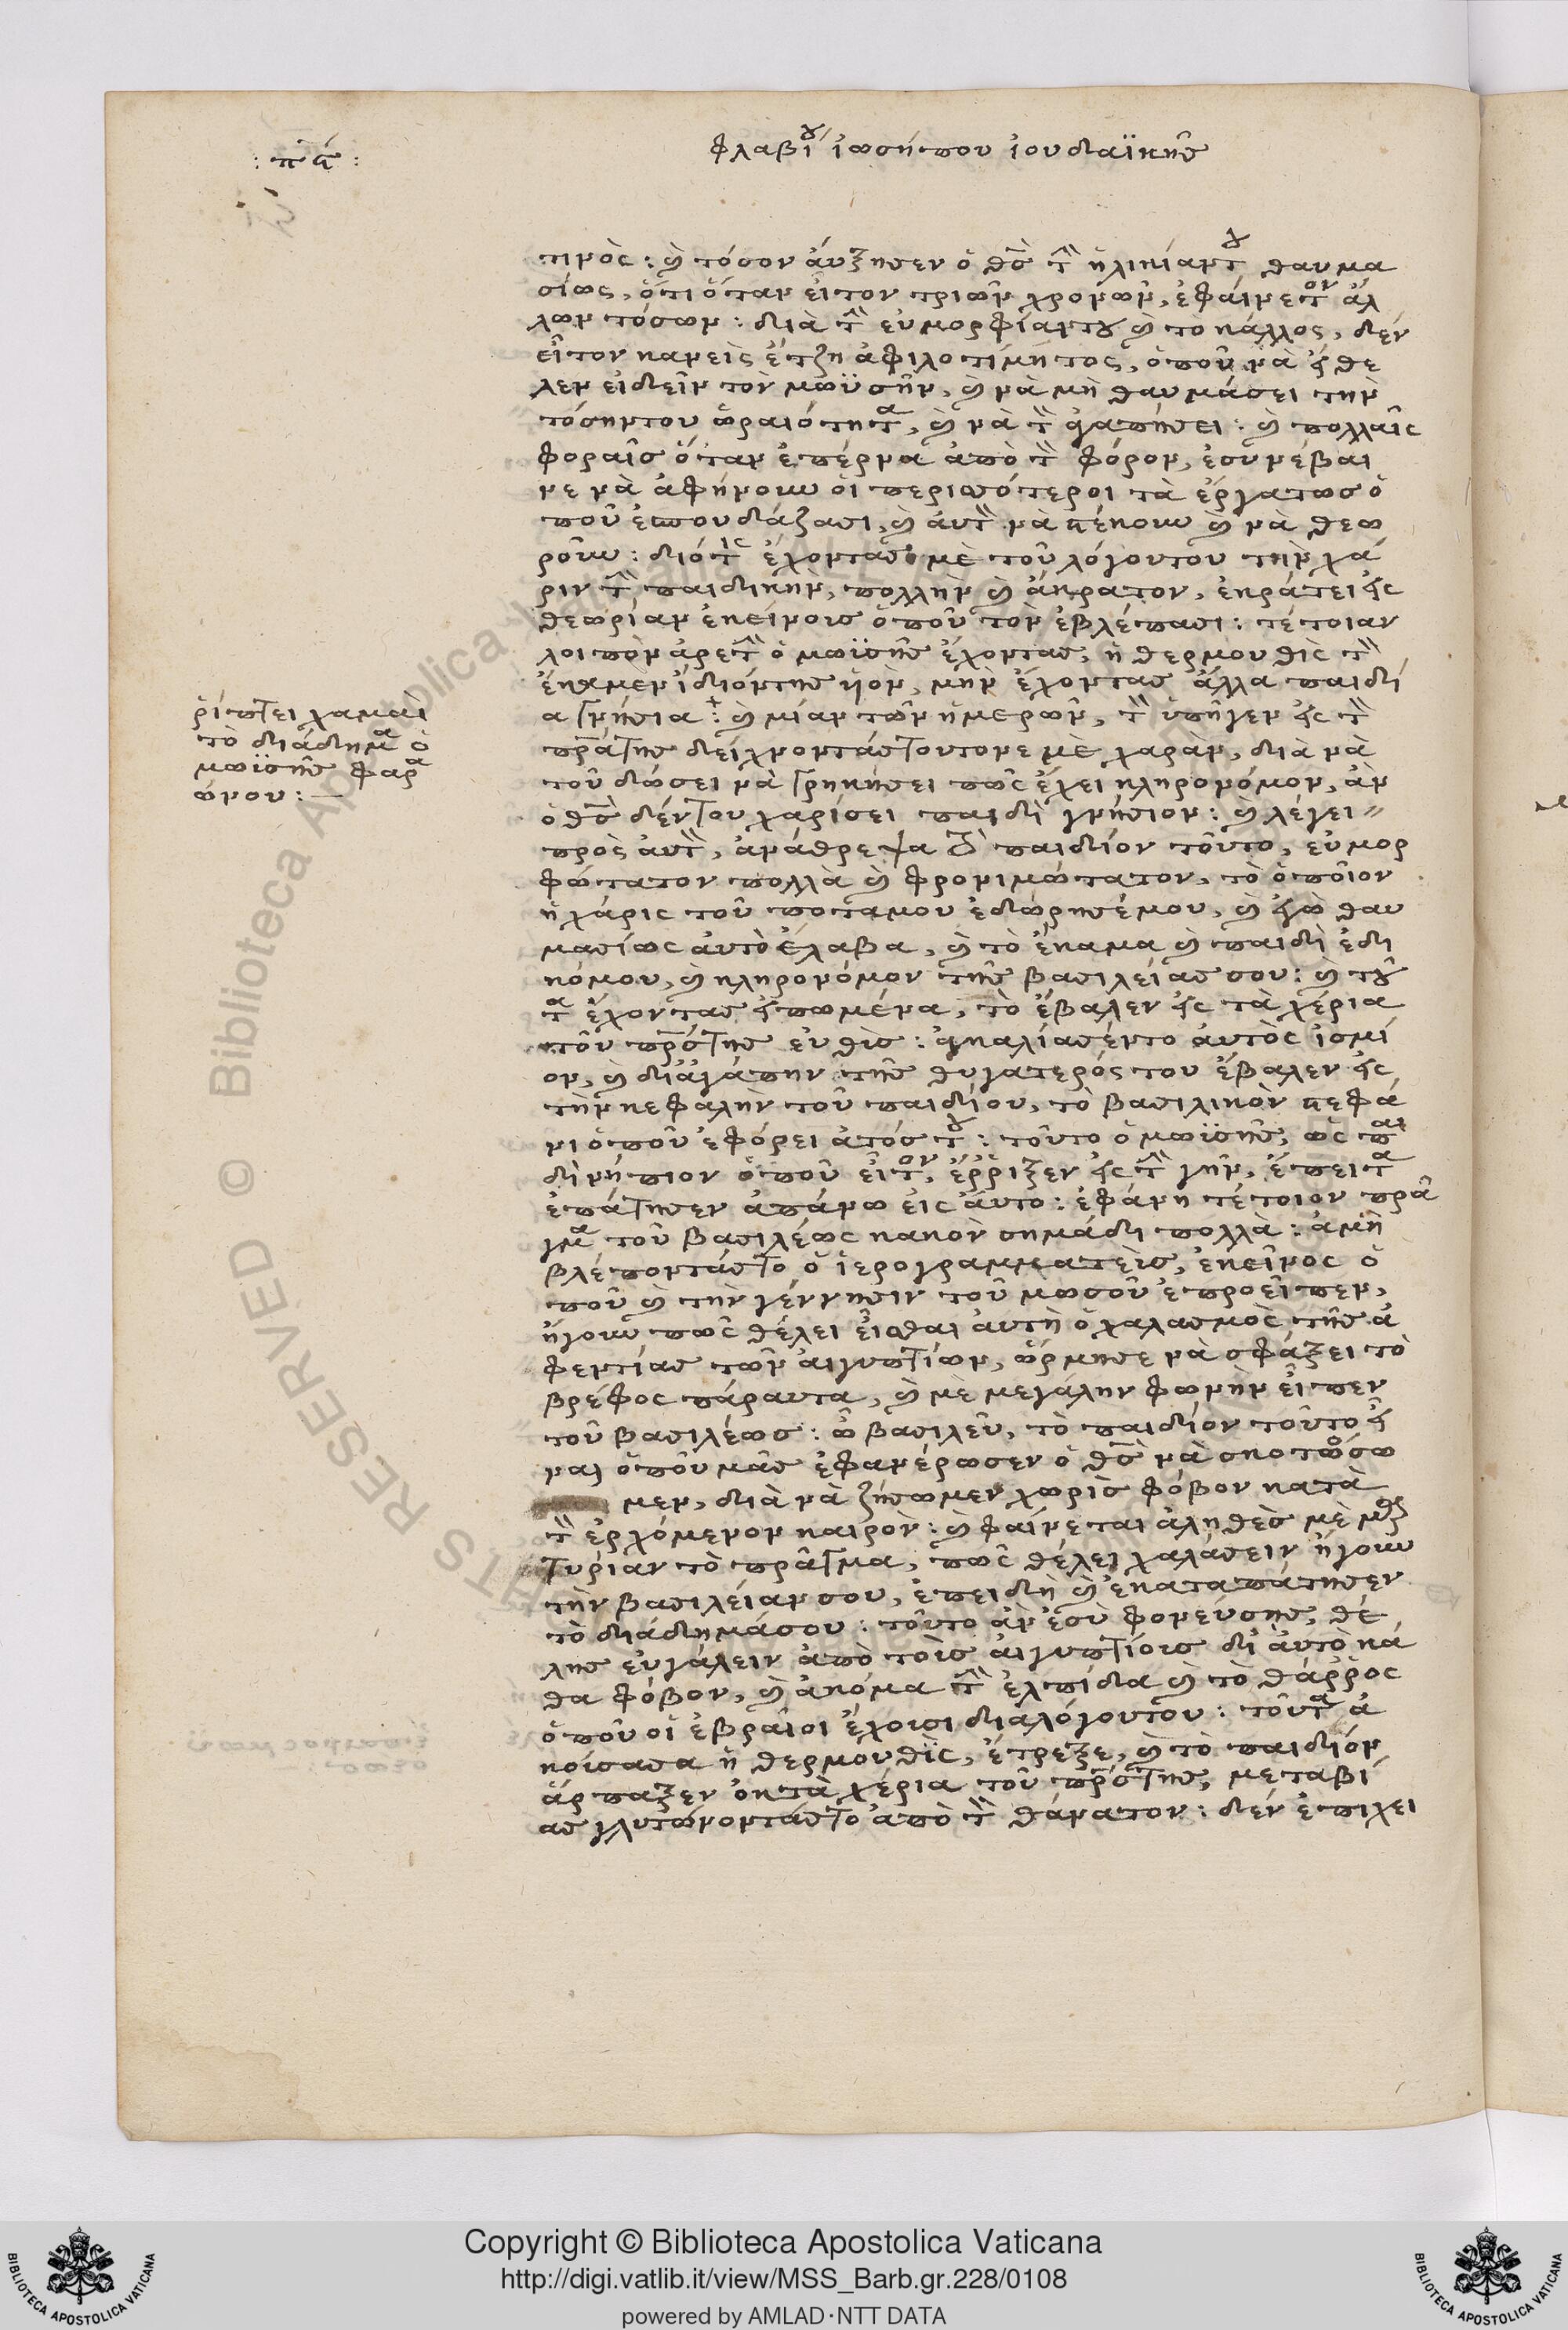 : πα :
φλαβίου ἰωσήπου ἰουδαϊκῆς
τικὸς: ϗ τόσον ἀύξησεν ὁ θς τ̀ ἡλικίαντου θαυμα
σίως, ὅτι ὅταν εἶτον τριῶν χρονῶν, ἐφάινετον ἀλ
λων τόσων: διὰ τ̀ ἐυμορφίαντου ϗ τὸ κάλλος, δέν
εἶτον κανεὶς ἔτζη ἀφιλοτίμητος, ὁποῦ νὰ ἤθε
λεν εἰδεῖν τὸν μωϋσῆν, ϗ νὰ μὴ θαυμάσει τὴν
τόσηντου ὡραιότητα, ϗ νὰ τ̀ ἀγαπήσει: ϗ πολλαῖς
φοραῖσ ὅταν ἐπέρνα ἀπὸ τ̀ φόρον, ἐσυνέβαι
νε νὰ ἀφήνουν ὁι περισσότεροι τὰ ἐργατωσ ὁ
ποῦ ἐσπουδάζασι, ϗ ἀυτ̀ νὰ στέκουν ϗ νὰ θεω
ροῦν: διότις ἔχοντασ μὲ τοῦ λόγουτου τὴν χά
ριν τ̀ παιδικὴν, πολλὴν ϗ ἄκρατον, ἐκράτει εἰς
θεωρίαν ἐκείνους ὁποῦ τὸν ἐβλέπασι: τέτοιαν
λοιπὸν ἀρετ̀ ὁ μωϋσῆς ἔχοντας, ἡ θερμουθὶς τ̀
ἔκαμεν ἰδιόντης ὑιὸν, μὴν ἔχοντας ἄλλα παιδί
α γνήσια: ϗ μίαν τῶν ἡμερῶν, τ̀ ὑπῆγεν εἰς τ̀
πρατης δείχνοντάστουτονε μὲ χαρὰν, διὰ νὰ
τοῦ δώσει νὰ γρηκήσει πῶς ἔχει κληρονόμον, ἀν
ὁ θς δέντου χαρίσει παιδὶ γνήσιον: ϗ λέγει
πρὸς ἀυτ̀, ἀνάθρεψα τὸ παιδίον τοῦτο, ἐυμορ
φώτατον πολλὰ ϗ φρονιμώτατον, τὸ ὁποῖον
ἡ χάρις τοῦ ποταμοῦ ἐδώρησέμου, ϗ ἐγὼ θαυ
μασίως ἀυτὸ ἔλαβα, ϗ τὸ ἔκαμα ϗ παιδὶ ἐδι
κόμου, ϗ κληρονόμον τῆς βασιλείας σου: ϗ τοῦ
τα ἔχοντας εἰπωμένα, τὸ ἔβαλεν εἰς τὰ χέρια
τοῦ πρστης ἐυθὶς: ἀγκαλίασέντο ἀυτὸς ἰσμί
ον, ϗ δι' ἀγάπην τῆς θυγατερός του ἔβαλεν εἰς
τὴν κεφαλὴν τοῦ παιδίου, τὸ βασιλικὸν στεφά
νι ὁποῦ ἐφόρει ἀτόστου: τοῦτο ὁ μωϋσῆς, ὡς παι
δὶ νήπιον ὁποῦ εἶτον, ἔρριξεν εἰς τ̀ γῆν, ἔπειτα
ἐπάτησεν ἀπάνω εἰς ἀυτο: ἐφάνη τέτοιον πρᾶ
γμα τοῦ βασιλέως κακὸν σημάδι πολλὰ: ἀμὴ
βλέποντάστο ὁ ἱερογραμματεὶς, ἐκεῖνος ὁ
ποῦ ϗ τὴν γέννησιν τοῦ μωσοῦ ἐπροεῖπεν,
ἤγουν πῶς θέλει εἶσθαι ἀυτὴ ὁ χαλασμὸς τῆς ἀ
φεντίας τῶν ἀιγυπτίων, ὥρμησε νὰ σφάξει τὸ
βρέφος πάραυτα, ϗ μὲ μεγάλην φωνὴν εἶπεν
τοῦ βασιλέως: ὦ βασιλεῦ, τὸ παιδίον τοῦτο εἶ
ναι ὁποῦ μᾶς ἐφανέρωσεν ὁ θς νὰ σκοτώσω
μεν, διὰ νὰ ζήσωμεν χωρὶς φόβον κατὰ
τ̀ ἐρχόμενον καιρὸν: ϗ φαίνεται ἀληθὲς μὲ μαρ
τυρίαν τὸ πρᾶγμα, πῶς θέλει χαλάσειν ἤγουν
τὴν βασιλείαν σου, ἐπειδὴ ϗ ἐκαταπάτησεν
τὸ διάδημάσου: τοῦτο ἀν ἐσὺ φονεύσης, θέ
λης ἐυγάλειν ἀπὸ τοὶς ἀιγυπτίοις δι' ἀυτὸ κά
θα φόβον, ϗ ἀκόμα τ̀ ἐλπίδα ϗ τὸ θάρρος
ὁποῦ οἱ ἑβραῖοι ἔχουσι διαλόγουτου: τοῦτα ἀ
κούσασα ἡ θερμουθὶς, ἔτρεξε, ϗ τὸ παιδίον
ἅρπαξεν ἐκ τὰ χέρια τοῦ πρστης, μεταβί
ας γλυτώνοντάστο ἀπὸ τ̀ θάνατον: δὲν ἐπιχει
ῥίπτει χαμαὶ
τὸ διάδημα ὁ
μωϋσῆς φαρα
ώνου: —
Copyright © Biblioteca Apostolica Vaticana
http://digi.vatlib.it/view/MSS_Barb.gr.228/0108
powered by AMLAD·NTT DATA